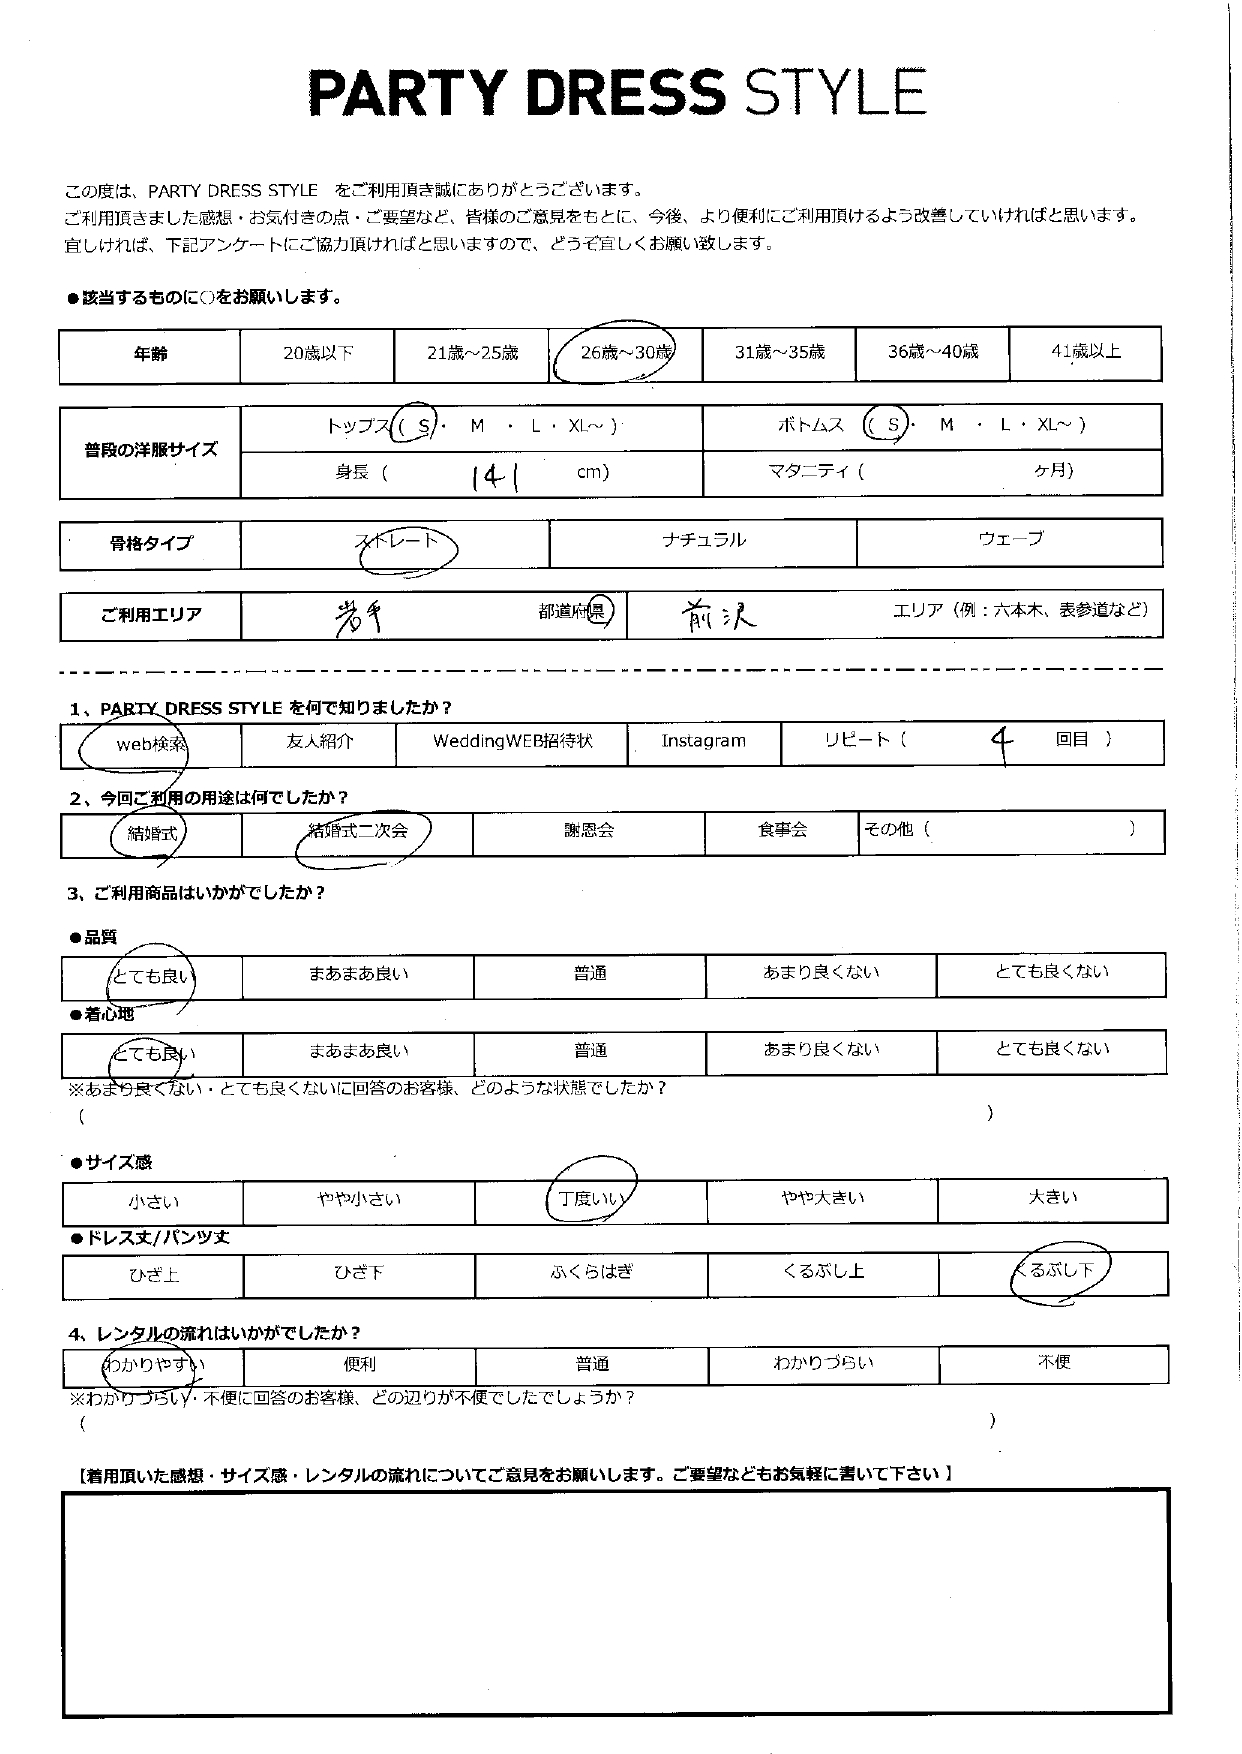 PARTY DRESS STYLE
この度は、PARTY DRESS STYLE をご利用頂き誠にありがとうございます。
ご利用頂きました感想・お気付きの点・ご要望など、皆様のご意見をもとに、今後、より便利にご利用頂けるよう改善していければと思います。
宜しければ、下記アンケートにご協力頂ければと思いますので、どうぞ宜しくお願い致します。
●該当するものに○をお願いします。
年齢 20歳以下 21歳～25歳 26歳～30歳 31歳～35歳 36歳～40歳 41歳以上
普段の洋服サイズ
トップス( S ・ M ・ L ・ XL～ ) ボトムス ( S ・ M ・ L ・ XL～ )
身長 ( 141 cm) マタニティ ( ケ月)
骨格タイプ ストレート ナチュラル ウェーブ
ご利用エリア 岩手 都道府県 前沢 エリア（例：六本木、表参道など）
1、PARTY DRESS STYLE を何で知りましたか？
web検索 友人紹介 WeddingWEB招待状 Instagram リピート ( 4 回目 )
2、今回ご利用の用途は何でしたか？
結婚式 結婚式二次会 謝恩会 食事会 その他 ( )
3、ご利用商品はいかがでしたか？
●品質
とても良い まあまあ良い 普通 あまり良くない とても良くない
●着心地
とても良い まあまあ良い 普通 あまり良くない とても良くない
※あまり良くない・とても良くないに回答のお客様、どのような状態でしたか？
( )
●サイズ感
小さい やや小さい 丁度いい やや大きい 大きい
●ドレス丈/パンツ丈
ひざ上 ひざ下 ふくらはぎ くるぶし上 くるぶし下
4、レンタルの流れはいかがでしたか？
わかりやすい 便利 普通 わかりづらい 不便
※わかりづらい・不便に回答のお客様、どの辺りが不便でしたでしょうか？
( )
【着用頂いた感想・サイズ感・レンタルの流れについてご意見をお願いします。ご要望などもお気軽に書いて下さい】